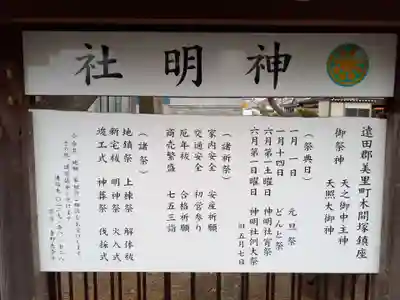 神明社
遠田郡美里町木間塚鎮座
御祭神 天之御中主神
天照大御神
(祭典日)
一月一日 元旦祭
一月十四日 どんと祭
六月第一土曜日 神明社宵祭
六月第一日曜日 神明社例大祭
旧五月七日
(諸祈祭)
家内安全 安産祈願
交通安全 初宮参り
厄年祓 合格祈願
商売繁盛 七五三詣
(諸祭)
地鎮祭 上棟祭 解体祓
新宅祓 明神祭 火入式
竣工式 神葬祭 伐採式